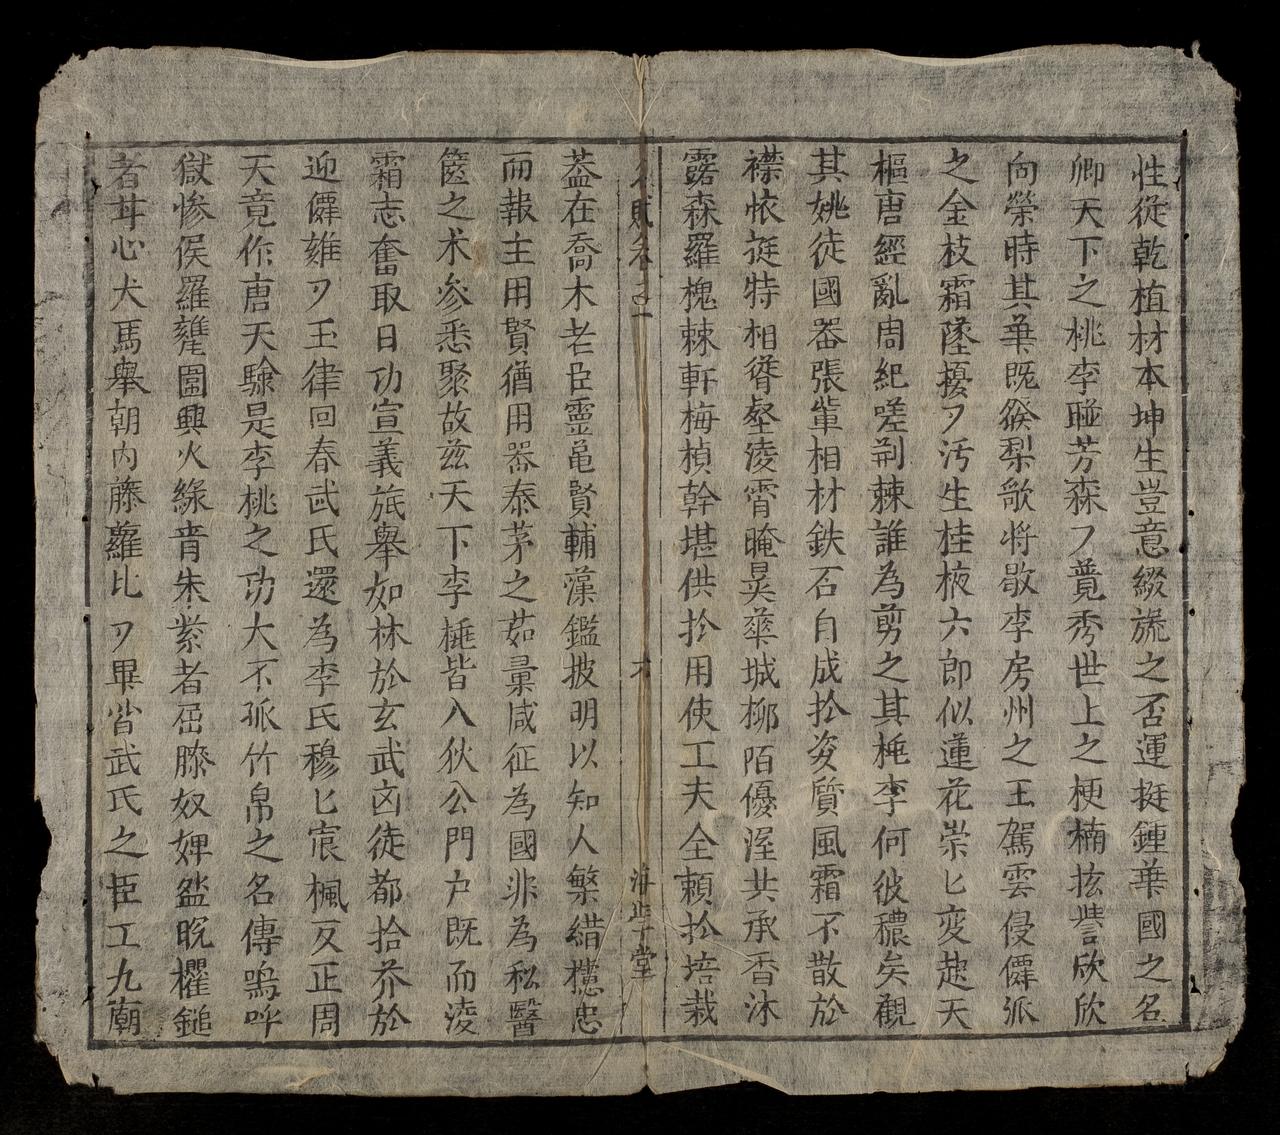 性從乾植材本坤生豈意綴旒之否運挺鍾華國之名
卿天下之桃李睚芳森ヌ竟秀世上之梗楠抜誉欣欣
向榮時其華既猴梨歌将歇李房州之王駕雲侵僻派
之金枝霜墜擾ヌ汚生桂掖六郎似蓮花崇匕変起天
樞唐經亂周紀嗟荊棘誰為剪之其桃李何彼穠矣觀
其姚徒國器張軰相材鉄石自成扵姿質風霜不散於
襟怀挺特相聳壑凌霄晻㬒蕐城柳陌優渥共承香沐
露森羅槐棘軒梅楨幹堪供扵用使工夫全頼扵培栽
賦卷之二 六 海學堂
盖在喬木老臣靈黾賢輔藻鑑披明以知人繁錯㯲忠
而報主用賢猶用器泰茅之茹彙咸征為國非為私醫
篋之术參悉聚故兹天下李桃皆入狄公門户既而凌
霜志奮取日功宣義旅舉如林於玄武凶徒都拾芥於
迎僊雉ヌ玉律回春武氏還為李氏穆匕宸楓反正周
天竟作唐天験是李桃之功大不孤竹帛之名傳嗚呼
獄惨侯羅甕圍興火緣青朱紫者屈膝奴婢盆晥欋鎚
者甘心犬馬舉朝内藤蘿比ヌ畢皆武氏之臣工九廟